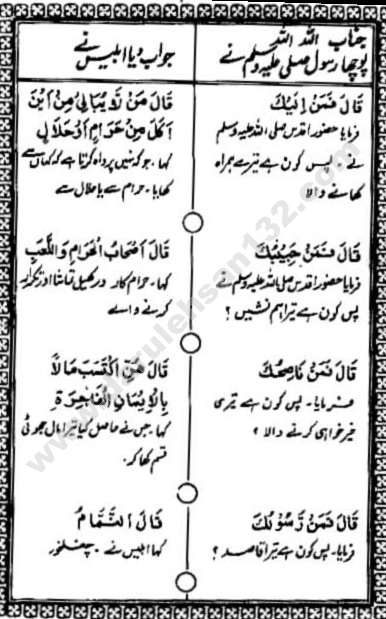 جناب اللہ اللہ
پوچھا رسول صلی علیہ وسلم نے
جواب دیا ابلیس نے
قَالَ فَمَنْ اَكِيْلُكَ
فرمایا حضور اقدس صلی اللہ علیہ وسلم
نے۔ پس کون ہے تیرے ہمراہ
کھانے والا
قَالَ مَنْ لَا يُبَالِيْ مِنْ اَيْنَ
اَكَلَ مِنْ حَرَامٍ اَوْحَلَالٍ
کہا۔ جو کہ نہیں پرواہ کرتا ہے کہ کہاں سے
کھایا۔ حرام سے یا حلال سے
قَالَ فَمَنْ جَلِيْسُكَ
فرمایا حضور اقدس صلی اللہ علیہ وسلم نے
پس کون ہے تیرا ہم نشیں؟
قَالَ اَصْحَابُ الْحَرَامِ وَاللَّعِبِ
کہا۔ حرام کار ورکھیل تماشا اور تکرار
کرنے والے
قَالَ فَمَنْ نَاصِحُكَ
فرمایا۔ پس کون ہے تیری
خیر خواہی کرنے والا؟
قَالَ مَنِ اكْتَسَبَ مَالًا
بِالْاَيْمَانِ الْفَاجِرَةِ
کہا۔ جس نے حاصل کیا تیرا مال جھوٹی
قسم کھا کر۔
قَالَ فَمَنْ رَّسُوْلُكَ
فرمایا۔ پس کون ہے تیرا قاصد؟
قَالَ النَّمَّامُ
کہا ابلیس نے۔ چغلخور
www.darulehsan132.com